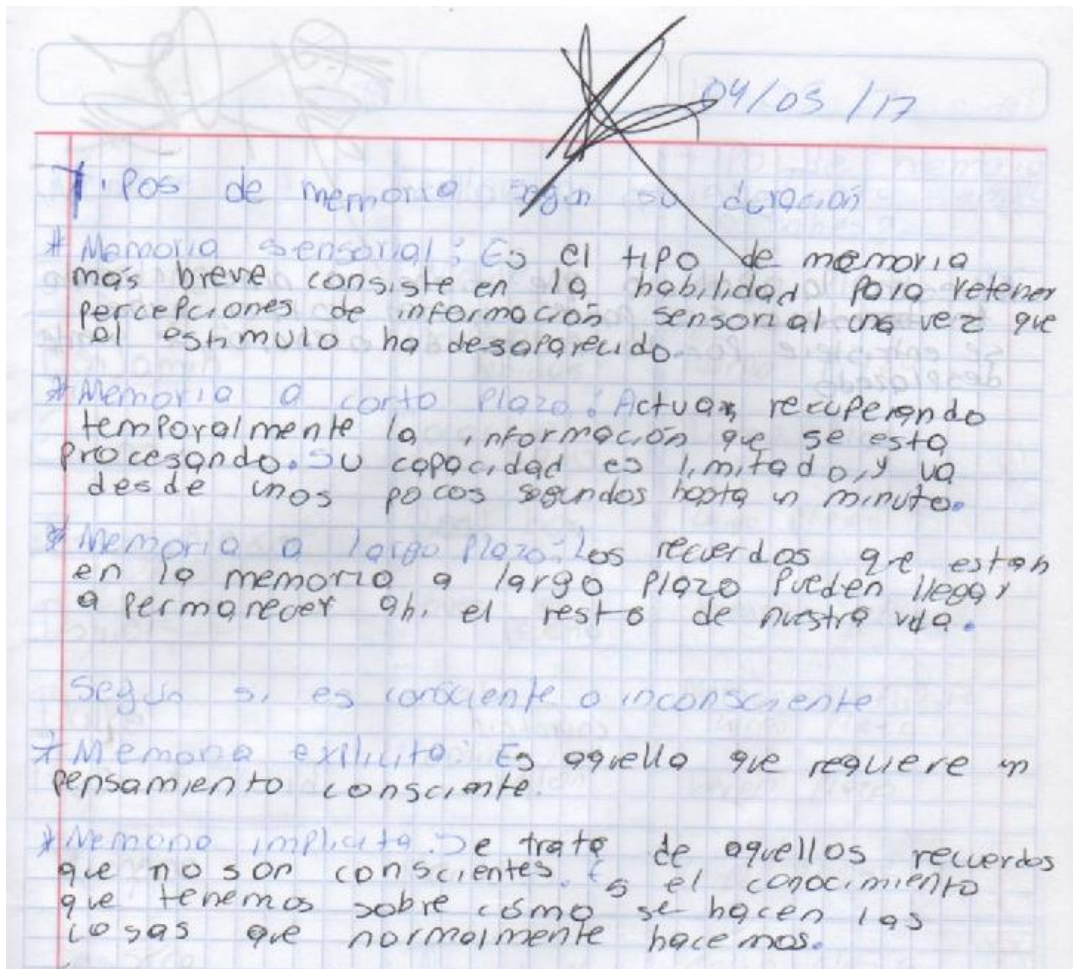 04/05/17
Tipos de memoria según su duración
* Memoria sensorial: Es el tipo de memoria
más breve consiste en la habilidad para retener
percepciones de información sensorial una vez que
el estimulo ha desaparecido.
* Memoria a corto Plazo: Actuar, recuperando
temporalmente la información que se esta
procesando. Su capacidad es limitado, y va
desde unos pocos segundos hasta un minuto.
* Memoria a largo Plazo: Los recuerdos que estan
en la memoria a largo Plazo Pueden llegar
a Permanecer ahi el resto de nuestra vida.
Según si es consciente o inconsciente
* Memoria exilicita: Es aquella que requiere un
pensamiento consciente.
* Memoria implicita. Se trata de aquellos recuerdos
que no son conscientes. Es el conocimiento
que tenemos sobre cómo se hacen las
cosas que normalmente hacemos.